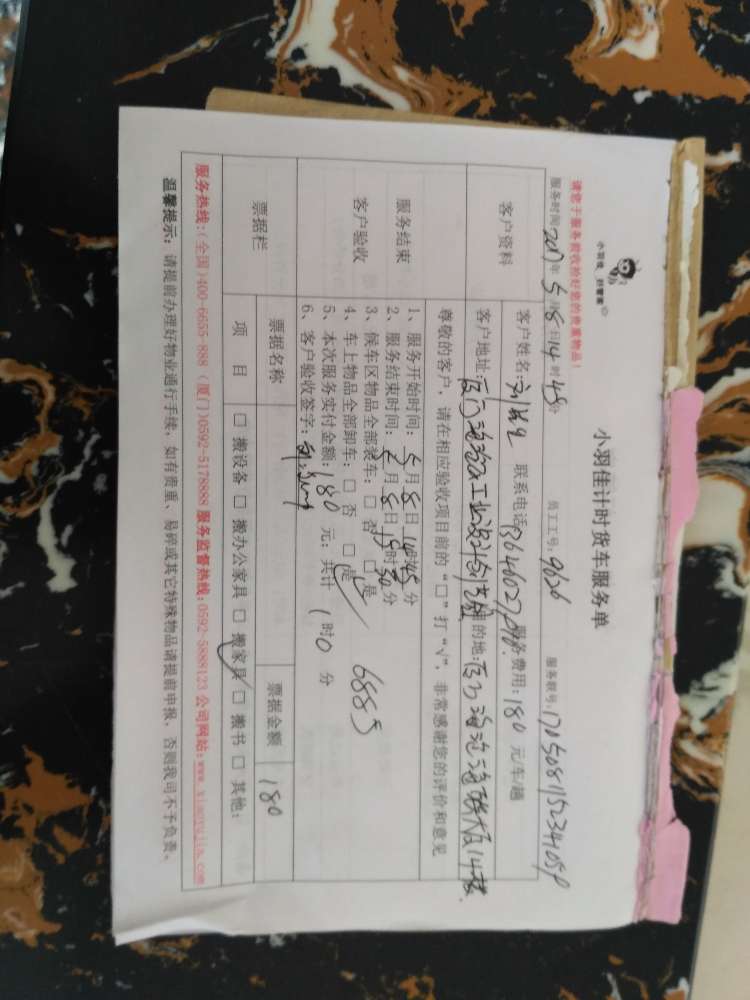 小羽佳计时货车服务单
小羽佳 好管家
请您于服务前收拾好您的贵重物品！
服务时间:2017年5月8日14时45分 员工工号:9636 服务联号:170508115234059
客户资料
客户姓名: 联系电话 服务费用:180元/车/趟
客户地址: 目的地:
尊敬的客户，请在相应验收项目前的“□”打“√”，非常感谢您的评价和意见
服务结束
客户验收
1、服务开始时间：5月8日14时45分
2、服务结束时间：5月8日15时30分
3、候车区物品全部装车：□否 □是
4、车上物品全部卸车：□否 □是 6885
5、本次服务实付金额：180元；共计1时0分
6、客户验收签字：
票据栏
票据名称 票据金额 180
项目 □搬设备 □搬办公家具 □搬家具 □搬书 □其他:
服务热线:(全国)400-6655-888 (厦门)0592-5178888 服务监督热线:0592-5888123 公司网站:www.xiaoyujia.com
温馨提示：请提前办理好物业通行手续，如有贵重、易碎或其它特殊物品请提前申报，否则我司不予负责。